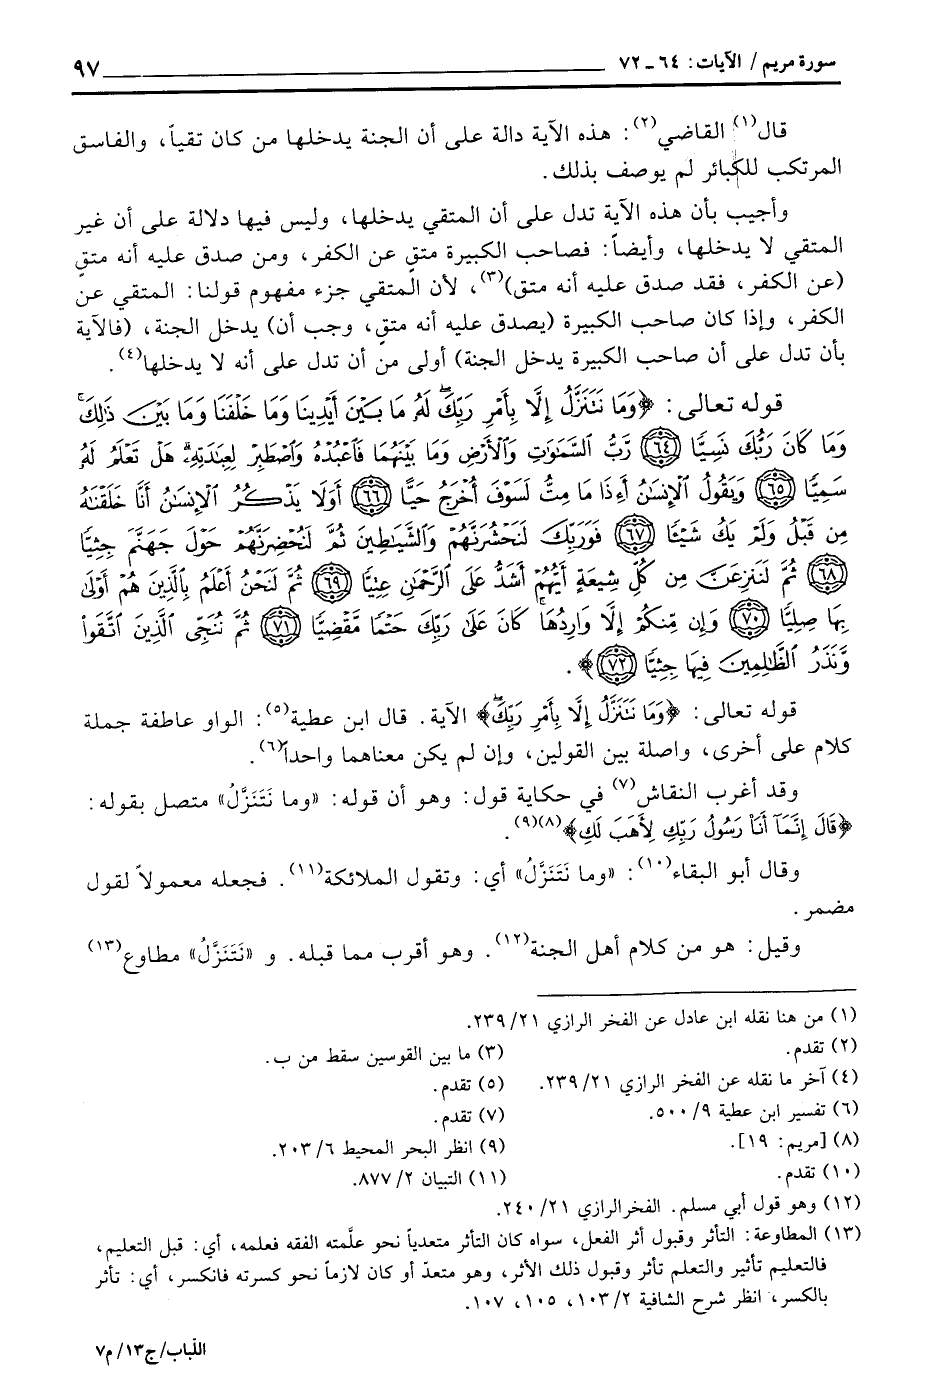 سورة مريم / الآيات: ٦٤ ـ ٧٢ ٩٧
قال(١) القاضي(٢): هذه الآية دالة على أن الجنة يدخلها من كان تقياً، والفاسق
المرتكب للكبائر لم يوصف بذلك.
وأجيب بأن هذه الآية تدل على أن المتقي يدخلها، وليس فيها دلالة على أن غير
المتقي لا يدخلها، وأيضاً: فصاحب الكبيرة متقٍ عن الكفر، ومن صدق عليه أنه متقٍ
(عن الكفر، فقد صدق عليه أنه متق)(٣)، لأن المتقي جزء مفهوم قولنا: المتقي عن
الكفر، وإذا كان صاحب الكبيرة (يصدق عليه أنه متقٍ، وجب أن) يدخل الجنة، (فالآية
بأن تدل على أن صاحب الكبيرة يدخل الجنة) أولى من أن تدل على أنه لا يدخلها(٤).
قوله تعالى: ﴿وَمَا نَتَنَزَّلُ إِلَّا بِأَمْرِ رَبِّكَۖ لَهُ مَا بَيْنَ أَيْدِينَا وَمَا خَلْفَنَا وَمَا بَيْنَ ذَٰلِكَۚ
وَمَا كَانَ رَبُّكَ نَسِيًّا (٦٤) رَّبُّ السَّمَٰوَٰتِ وَالْأَرْضِ وَمَا بَيْنَهُمَا فَاعْبُدْهُ وَاصْطَبِرْ لِعِبَٰدَتِهِۚ هَلْ تَعْلَمُ لَهُ
سَمِيًّا (٦٥) وَيَقُولُ الْإِنسَٰنُ أَءِذَا مَا مِتُّ لَسَوْفَ أُخْرَجُ حَيًّا (٦٦) أَوَلَا يَذْكُرُ الْإِنسَٰنُ أَنَّا خَلَقْنَٰهُ
مِن قَبْلُ وَلَمْ يَكُ شَيْئًا (٦٧) فَوَرَبِّكَ لَنَحْشُرَنَّهُمْ وَالشَّيَاطِينَ ثُمَّ لَنُحْضِرَنَّهُمْ حَوْلَ جَهَنَّمَ جِثِيًّا
(٦٨) ثُمَّ لَنَنزِعَنَّ مِن كُلِّ شِيعَةٍ أَيُّهُمْ أَشَدُّ عَلَى الرَّحْمَٰنِ عِتِيًّا (٦٩) ثُمَّ لَنَحْنُ أَعْلَمُ بِالَّذِينَ هُمْ أَوْلَىٰ
بِهَا صِلِيًّا (٧٠) وَإِن مِّنكُمْ إِلَّا وَارِدُهَاۚ كَانَ عَلَىٰ رَبِّكَ حَتْمًا مَّقْضِيًّا (٧١) ثُمَّ نُنَجِّي الَّذِينَ اتَّقَوا
وَّنَذَرُ الظَّالِمِينَ فِيهَا جِثِيًّا (٧٢)﴾.
قوله تعالى: ﴿وَمَا نَتَنَزَّلُ إِلَّا بِأَمْرِ رَبِّكَۖ﴾ الآية. قال ابن عطية(٥): الواو عاطفة جملة
كلام على أخرى، واصلة بين القولين، وإن لم يكن معناهما واحداً(٦).
وقد أغرب النقاش(٧) في حكاية قول: وهو أن قوله: «وما نَتَنَزَّلُ» متصل بقوله:
﴿قَالَ إِنَّمَا أَنَا۠ رَسُولُ رَبِّكِ لِأَهَبَ لَكِ﴾(٨)(٩).
وقال أبو البقاء(١٠): «وما نَتَنَزَّلُ» أي: وتقول الملائكة(١١). فجعله معمولاً لقول
مضمر.
وقيل: هو من كلام أهل الجنة(١٢). وهو أقرب مما قبله. و «نَتَنَزَّلُ» مطاوع(١٣)
(١) من هنا نقله ابن عادل عن الفخر الرازي ٢١/ ٢٣٩.
(٢) تقدم. (٣) ما بين القوسين سقط من ب.
(٤) آخر ما نقله عن الفخر الرازي ٢١/ ٢٣٩. (٥) تقدم.
(٦) تفسير ابن عطية ٩/ ٥٠٠. (٧) تقدم.
(٨) [مريم: ١٩]. (٩) انظر البحر المحيط ٦/ ٢٠٣.
(١٠) تقدم. (١١) التبيان ٢/ ٨٧٧.
(١٢) وهو قول أبي مسلم. الفخر الرازي ٢١/ ٢٤٠.
(١٣) المطاوعة: التأثر وقبول أثر الفعل، سواه كان التأثر متعدياً نحو علَّمته الفقه فعلمه، أي: قبل التعليم،
فالتعليم تأثير والتعلم تأثر وقبول ذلك الأثر، وهو متعدّ أو كان لازماً نحو كسرته فانكسر، أي: تأثر
بالكسر، انظر شرح الشافية ٢/ ١٠٣، ١٠٥، ١٠٧.
اللّباب/ ج١٣/ م٧